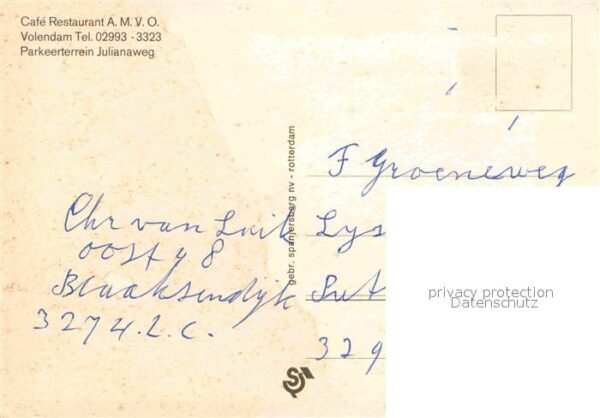 Café Restaurant A. M. V. O.
Volendam Tel. 02993 - 3323
Parkeerterrein Julianaweg
gebr. spanjersberg nv - rotterdam
F Groeneweg
Lys
Sut
329
Chr van Luik
oost 48
Blaaksendijk
3274.L.C.
privacy protection
Datenschutz